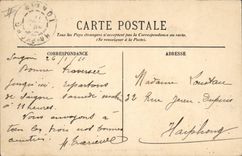 CARTE POSTALE
Tous les Pays étrangers n'acceptent pas la Correspondance au recto.
(Se renseigner à la Poste)
CORRESPONDANCE
ADRESSE
Saigon 26/1/11
Bonne traversée
jusqu'ici, repartons
de Saigon Samedi
11 heures.
Vous envoyons à
tous les trois nos bonnes
amitiés.
Madame
32 Rue Jean Dupuis
Haiphong